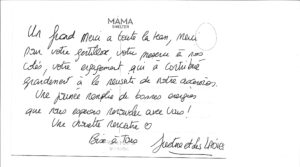 MAMA
SHELTER
Un grand Merci a toute la team, Merci
pour votre gentillesse votre presence à nos
cotés, votre engagement qui à contribué
grandement à la reussite de notre
Une journée remplie de bonnes energies
que nous esperons renouveler avec vous !
Une chouette rencontre ♡
Bise à Tous
Justine et les